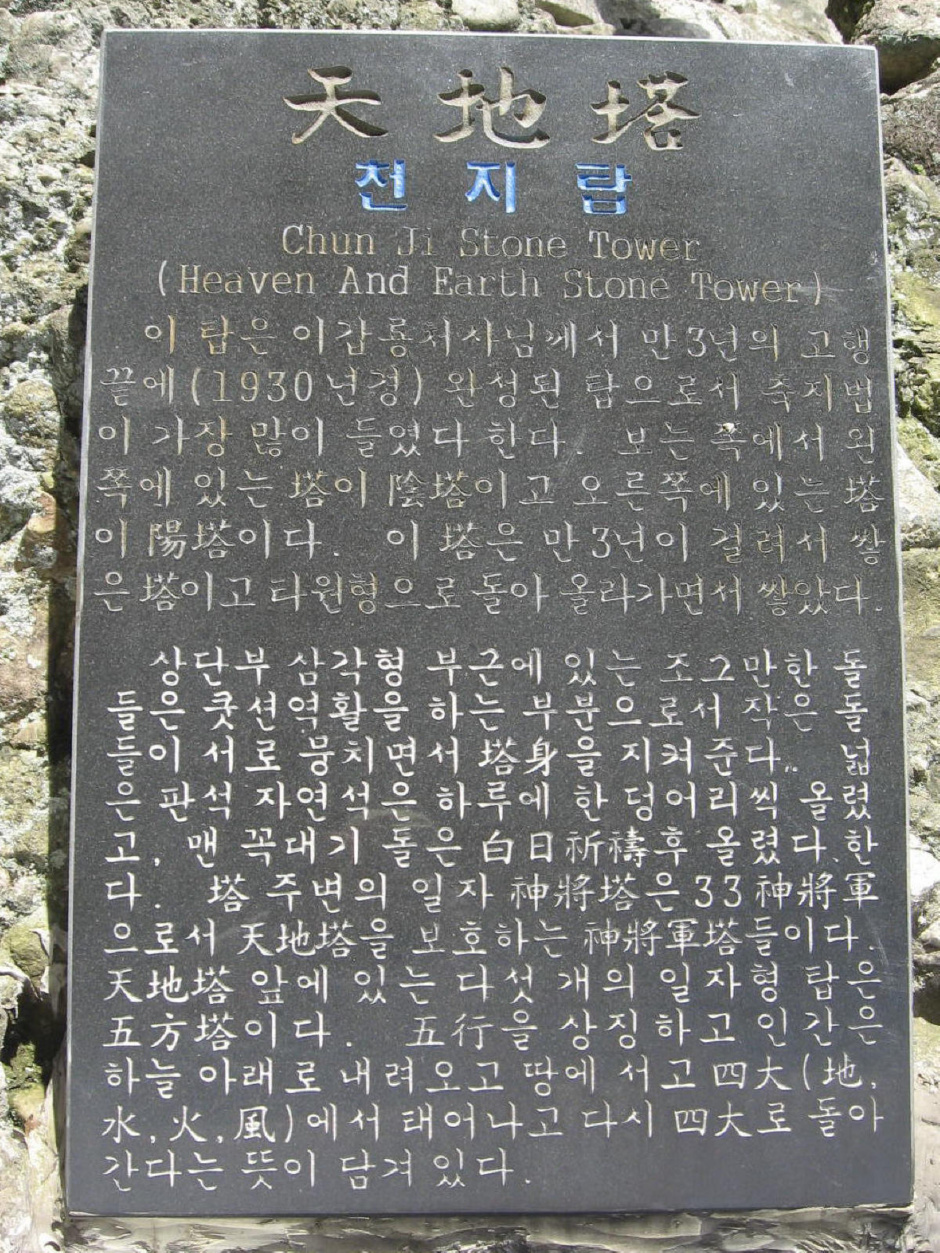 天地塔
천지탑
Chun Ji Stone Tower
(Heaven And Earth Stone Tower)
이 탑은 이갑룡처사님께서 만3년의 고행
끝에(1930년경) 완성된 탑으로서 축지법
이 가장 많이 들였다 한다. 보는 쪽에서 왼
쪽에 있는 塔이 陰塔이고 오른쪽에 있는 塔
이 陽塔이다. 이 塔은 만3년이 걸려서 쌓
은塔이고 타원형으로 돌아 올라가면서 쌓았다.
상단부 삼각형 부근에 있는 조그만한 돌
들은 쿳션역활을 하는 부분으로서 작은 돌
들이 서로 뭉치면서 塔身을 지켜준다. 넓
은 판석 자연석은 하루에 한 덩어리씩 올렸
고, 맨 꼭대기 돌은 白日祈禱후 올렸다.한
다. 塔 주변의 일자 神將塔은33神將軍
으로서 天地塔을 보호하는 神將軍塔들이다.
天地塔 앞에 있는 다섯 개의 일자형 탑은
五方塔이다. 五行을 상징하고 인간은
하늘 아래로 내려오고 땅에 서고 四大(地,
水,火,風)에서 태어나고 다시 四大로 돌아
간다는 뜻이 담겨 있다.